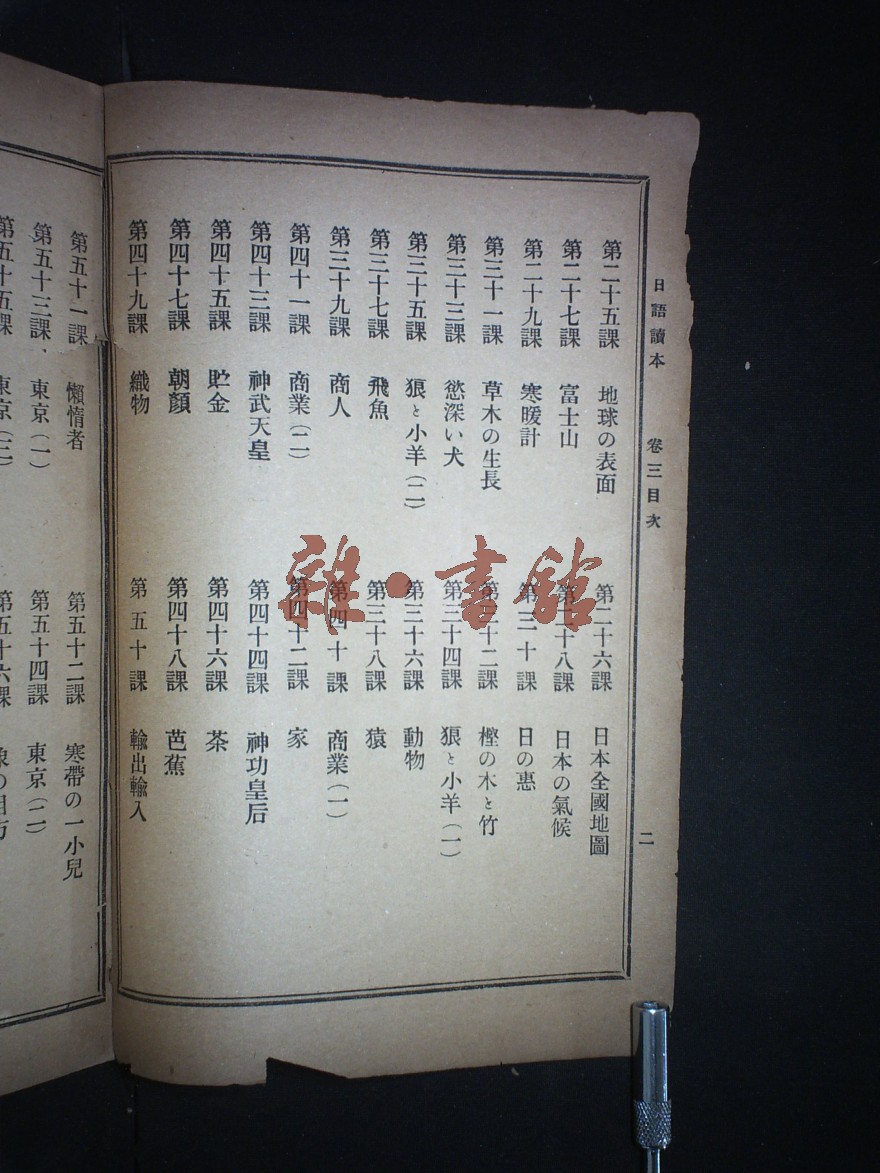 日語讀本 卷三目次 二
第二十五課 地球の表面
第二十六課 日本全國地圖
第二十七課 富士山
第二十八課 日本の氣候
第二十九課 寒暖計
第三十課 日の惠
第三十一課 草木の生長
第三十二課 樫の木と竹
第三十三課 慾深い犬
第三十四課 狼と小羊(一)
第三十五課 狼と小羊(二)
第三十六課 動物
第三十七課 飛魚
第三十八課 猿
第三十九課 商人
第四十課 商業(一)
第四十一課 商業(二)
第四十二課 家
第四十三課 神武天皇
第四十四課 神功皇后
第四十五課 貯金
第四十六課 茶
第四十七課 朝顏
第四十八課 芭蕉
第四十九課 織物
第五十課 輸出輸入
第五十一課 懶惰者
第五十二課 寒帶の一小兒
第五十三課 東京(一)
第五十四課 東京(二)
第五十五課 東京(三)
第五十六課 象の目方
雜·書館